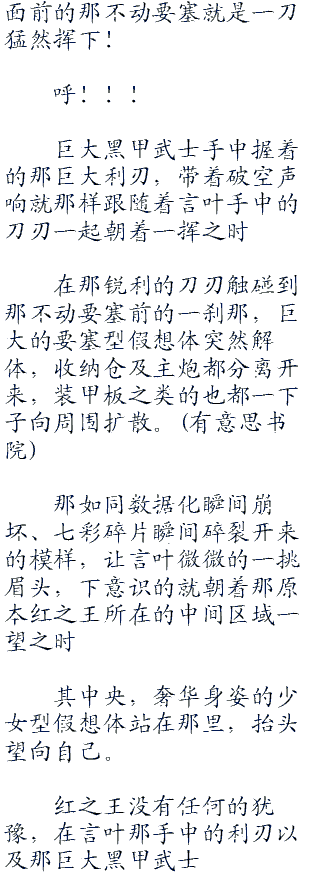 面前的那不动要塞就是一刀
猛然挥下！
呼！！！
巨大黑甲武士手中握着
的那巨大利刃，带着破空声
响就那样跟随着言叶手中的
刀刃一起朝着一挥之时
在那锐利的刀刃触碰到
那不动要塞前的一刹那，巨
大的要塞型假想体突然解
体，收纳仓及主炮都分离开
来，装甲板之类的也都一下
子向周围扩散。(有意思书
院)
那如同数据化瞬间崩
坏、七彩碎片瞬间碎裂开来
的模样，让言叶微微的一挑
眉头，下意识的就朝着那原
本红之王所在的中间区域一
望之时
其中央，奢华身姿的少
女型假想体站在那里，抬头
望向自己。
红之王没有任何的犹
豫，在言叶那手中的利刃以
及那巨大黑甲武士